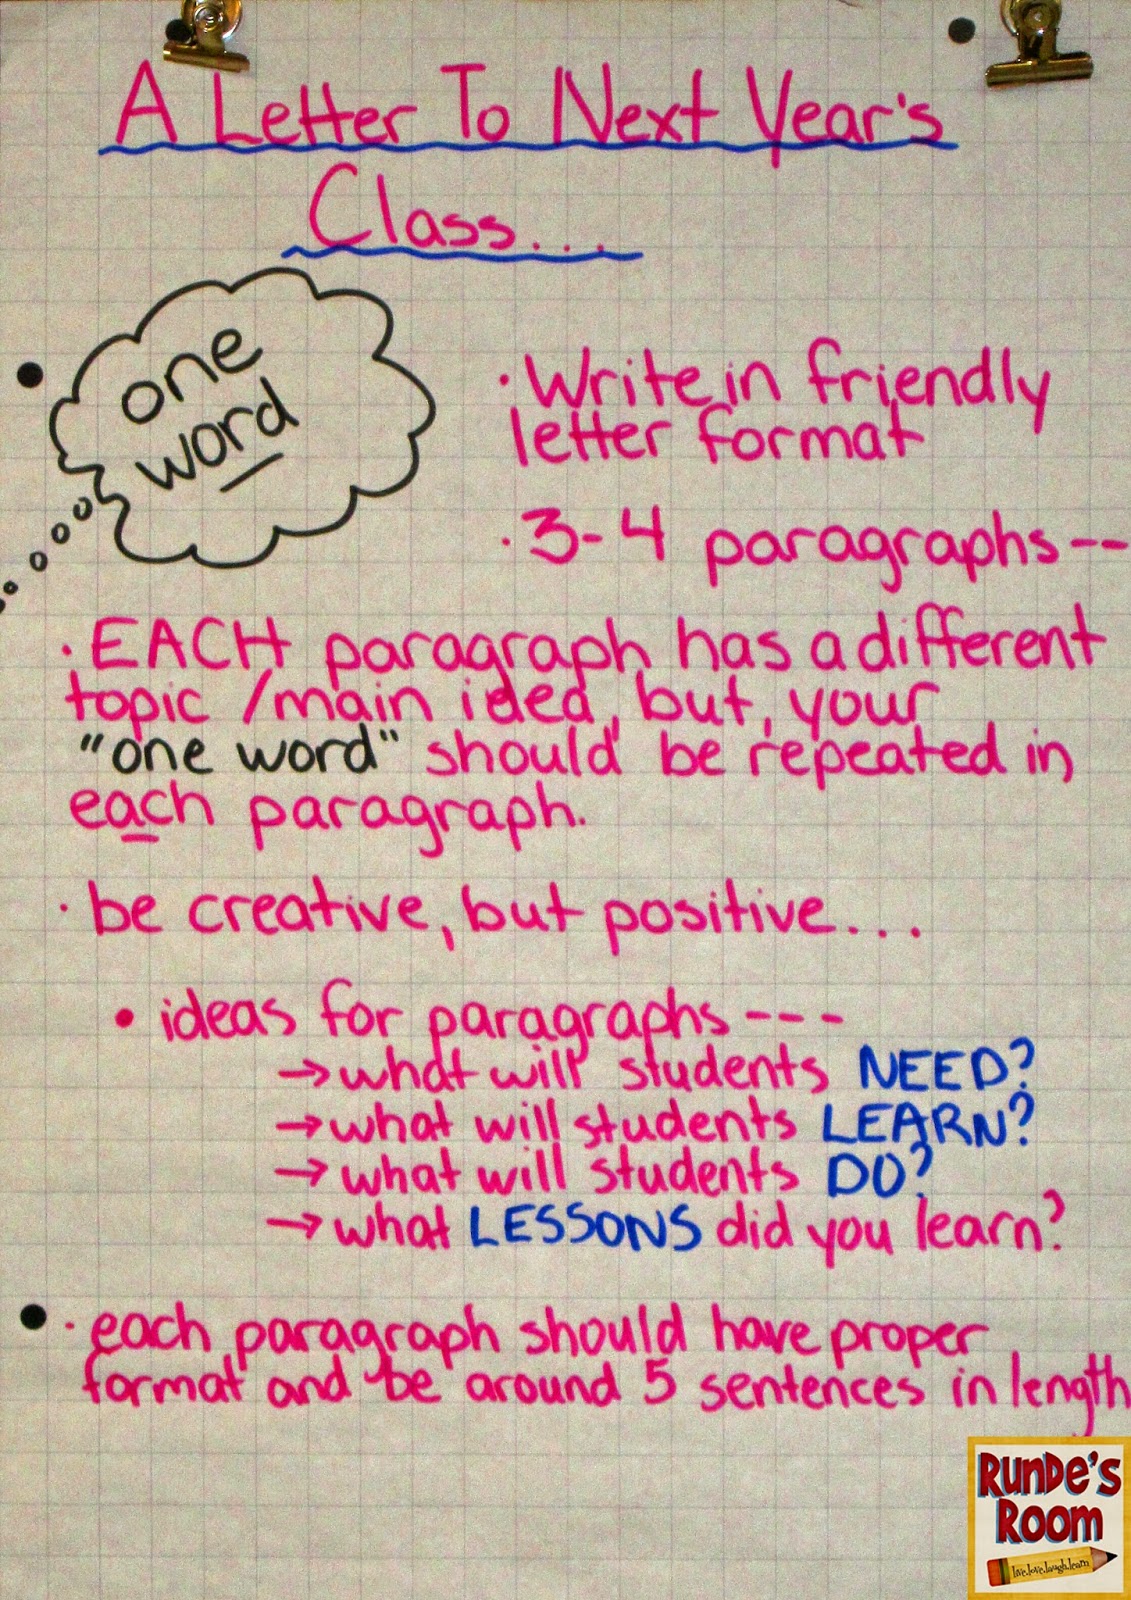 A Letter To Next Year's
Class...
one
word
·Write in friendly
letter format
·3-4 paragraphs--
·EACH paragraph has a different
topic /main idea, but, your
"one word" should be repeated in
each paragraph.
·be creative, but positive...
• ideas for paragraphs---
→what will students NEED?
→what will students LEARN?
→what will students DO?
→what LESSONS did you learn?
·each paragraph should have proper
format and be around 5 sentences in length
Runde's
Room
live.love.laugh.learn